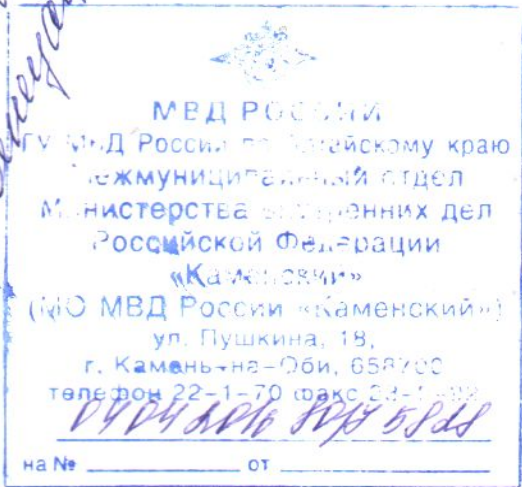 МВД РОССИИ
ГУ МВД России по Алтайскому краю
Межмуниципальный отдел
Министерства внутренних дел
Российской Федерации
«Каменский»
(МО МВД России «Каменский»)
ул. Пушкина, 18,
г. Камень-на-Оби, 658700
телефон 22-1-70 факс
04 04 2016
на № от